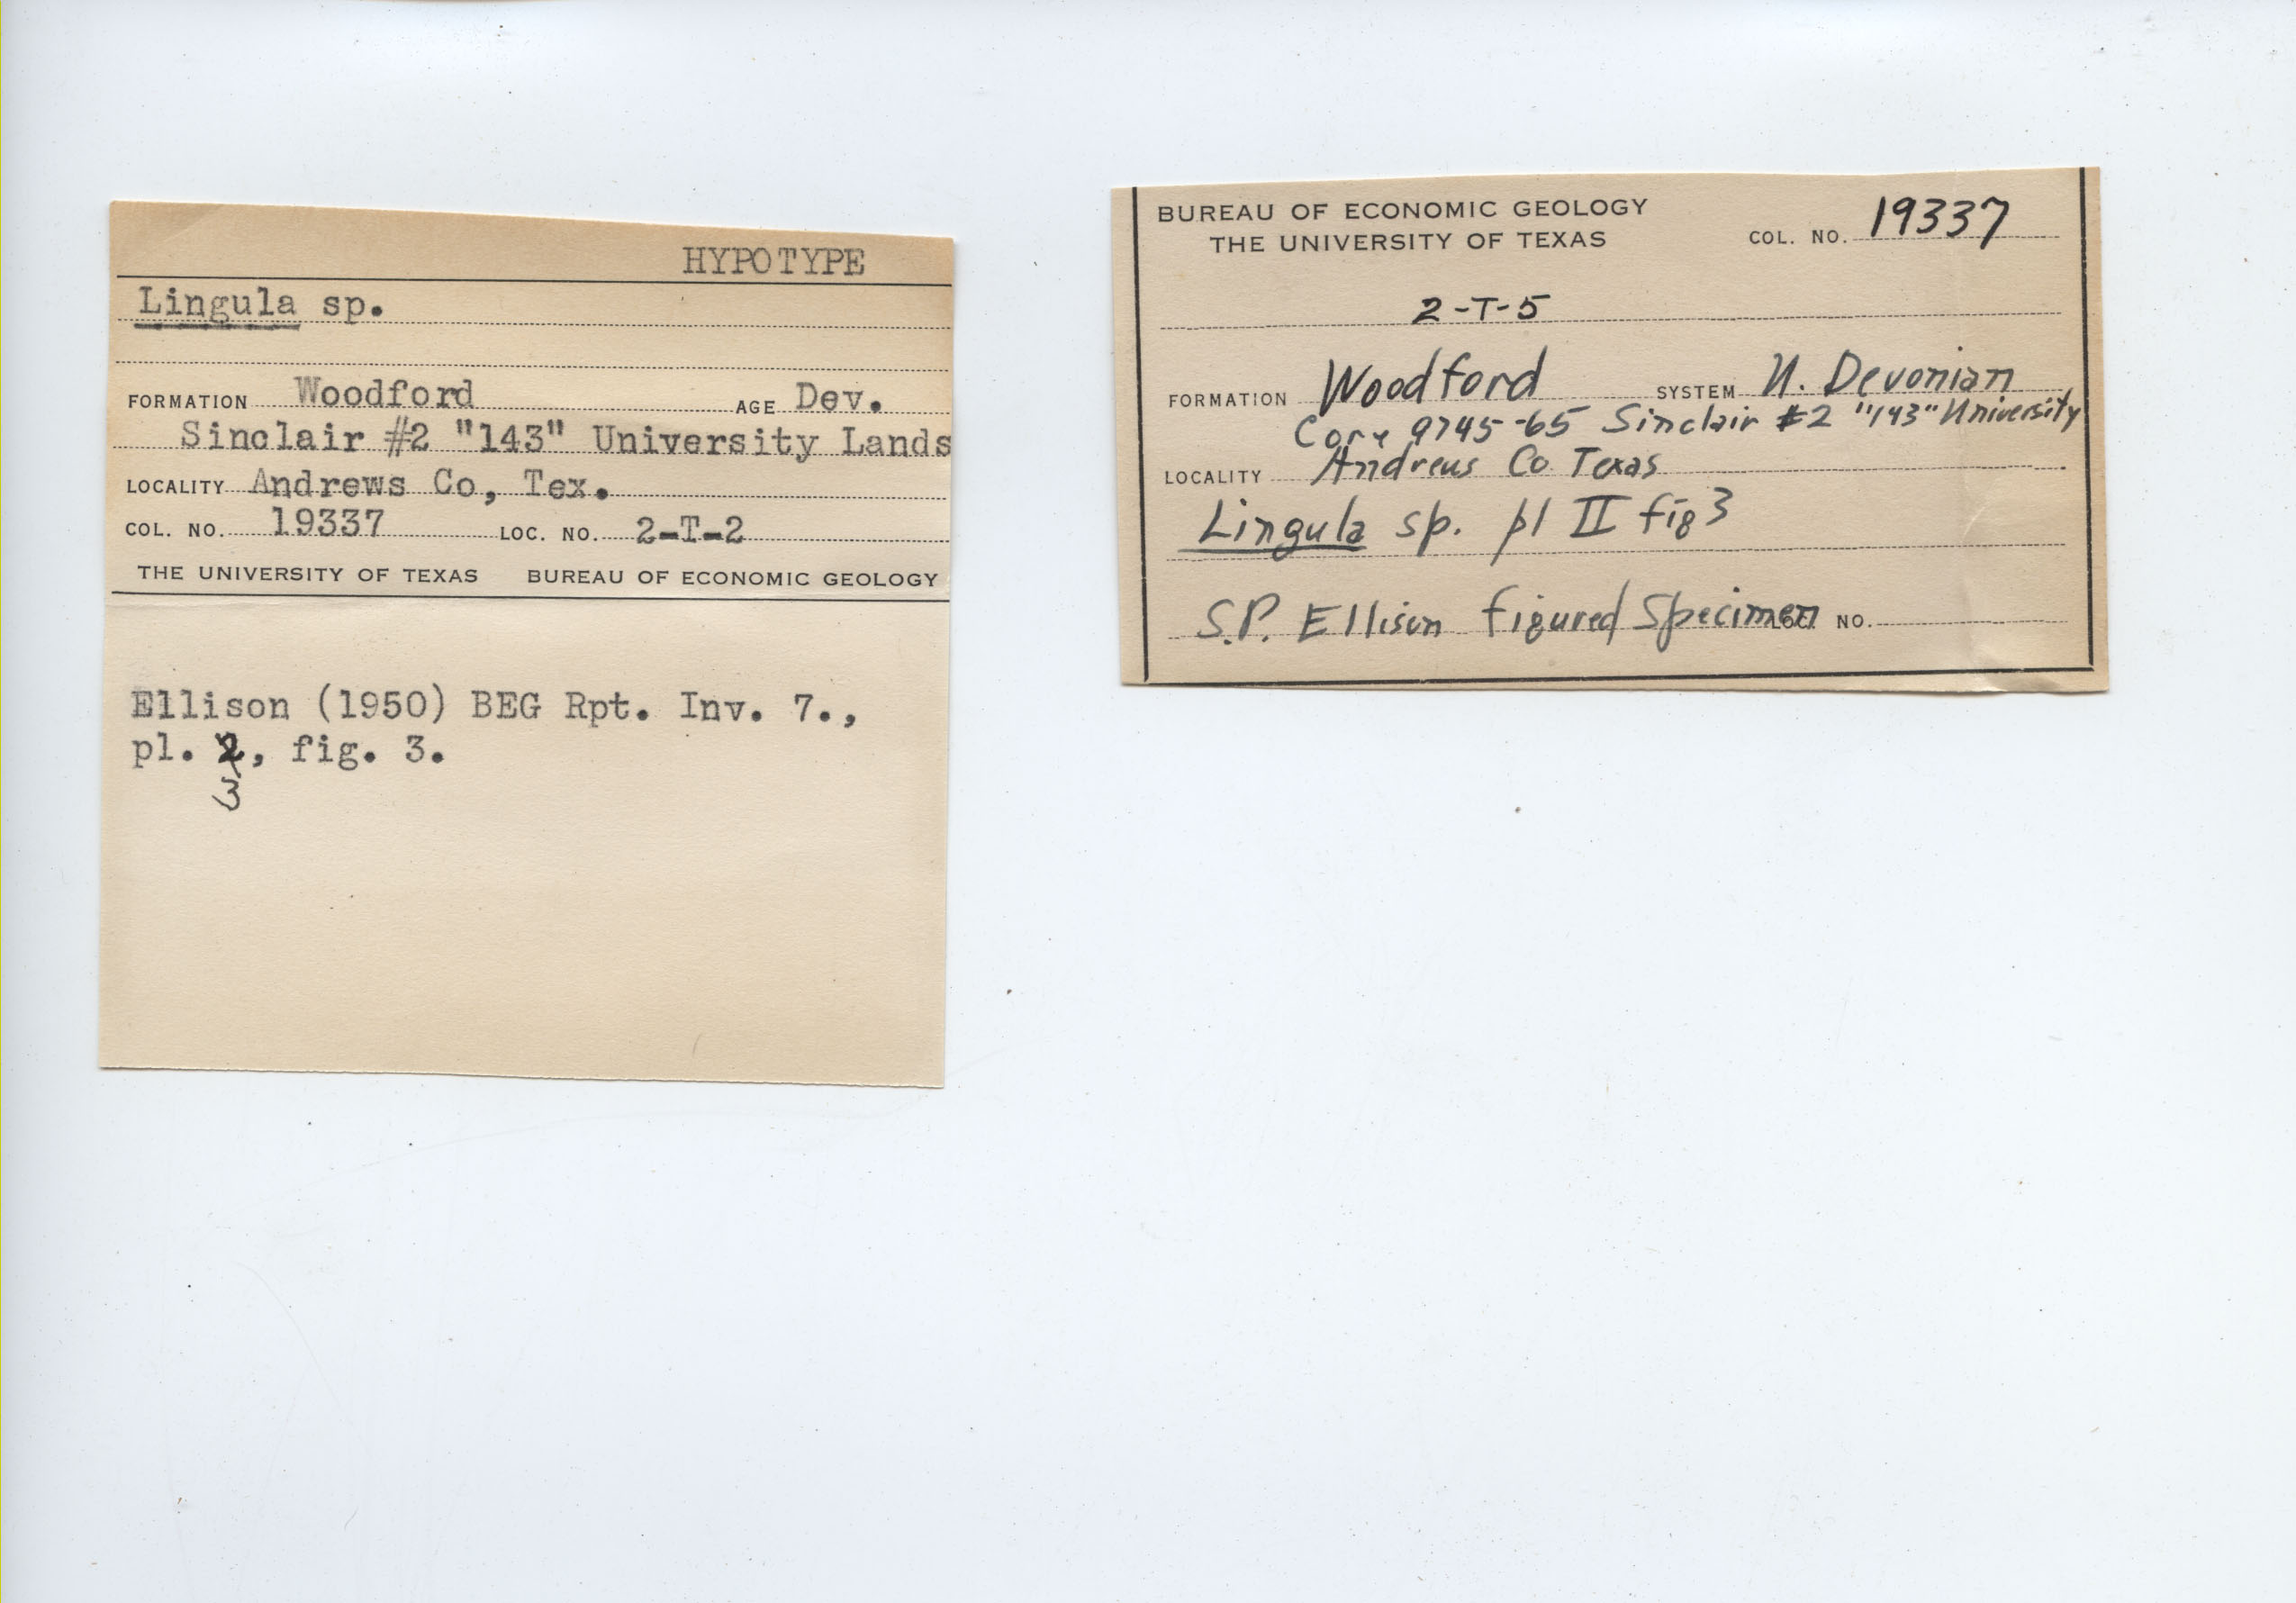 HYPOTYPE
Lingula sp.
FORMATION Woodford AGE Dev.
Sinclair #2 "143" University Lands
LOCALITY Andrews Co, Tex.
COL. NO. 19337 LOC. NO. 2-T-2
THE UNIVERSITY OF TEXAS BUREAU OF ECONOMIC GEOLOGY
Ellison (1950) BEG Rpt. Inv. 7.,
pl. 2, fig. 3.
3
BUREAU OF ECONOMIC GEOLOGY
THE UNIVERSITY OF TEXAS COL. NO. 19337
2-T-5
FORMATION Woodford SYSTEM U. Devonian
Core 9745-65 Sinclair #2 "143" University
LOCALITY Andrews Co Texas
Lingula sp. pl II fig 3
S.P. Ellison figured Specimen LOC. NO.